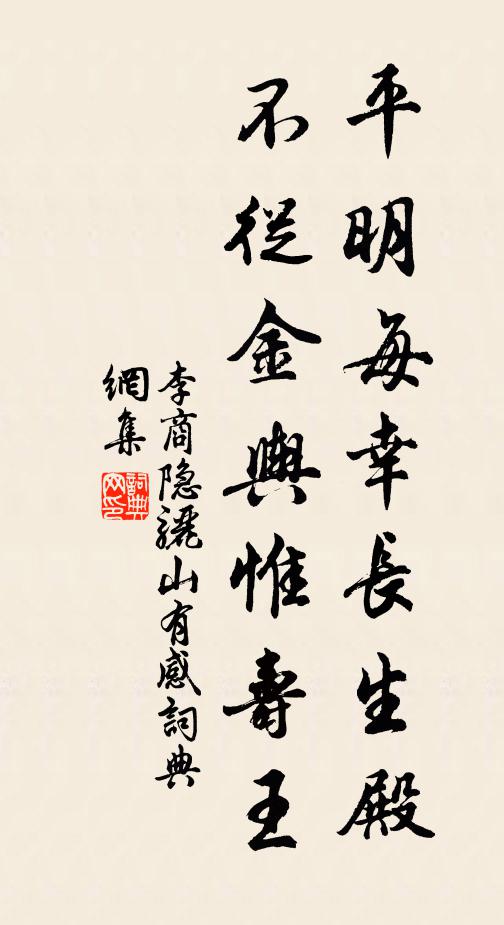 平明每幸長生殿
不從金輿惟壽王
李商隐驪山有感詞典
網集
詞典網印